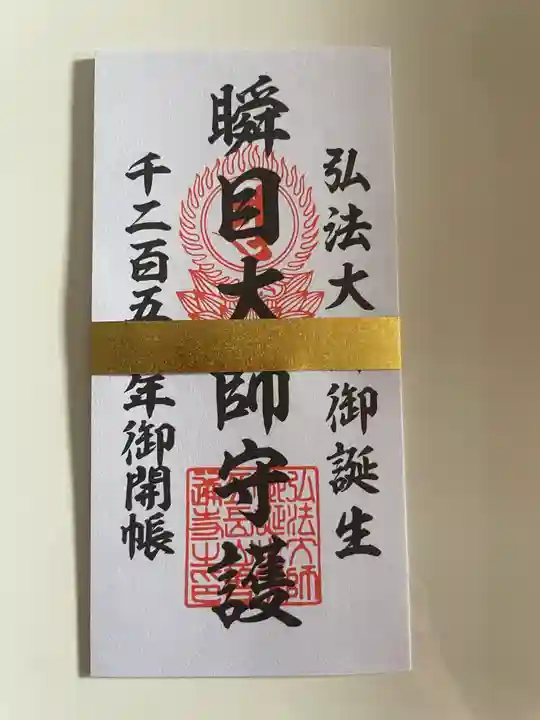 弘法大 御誕生
瞬目大師守護
千二百五 年御開帳
弘法大師